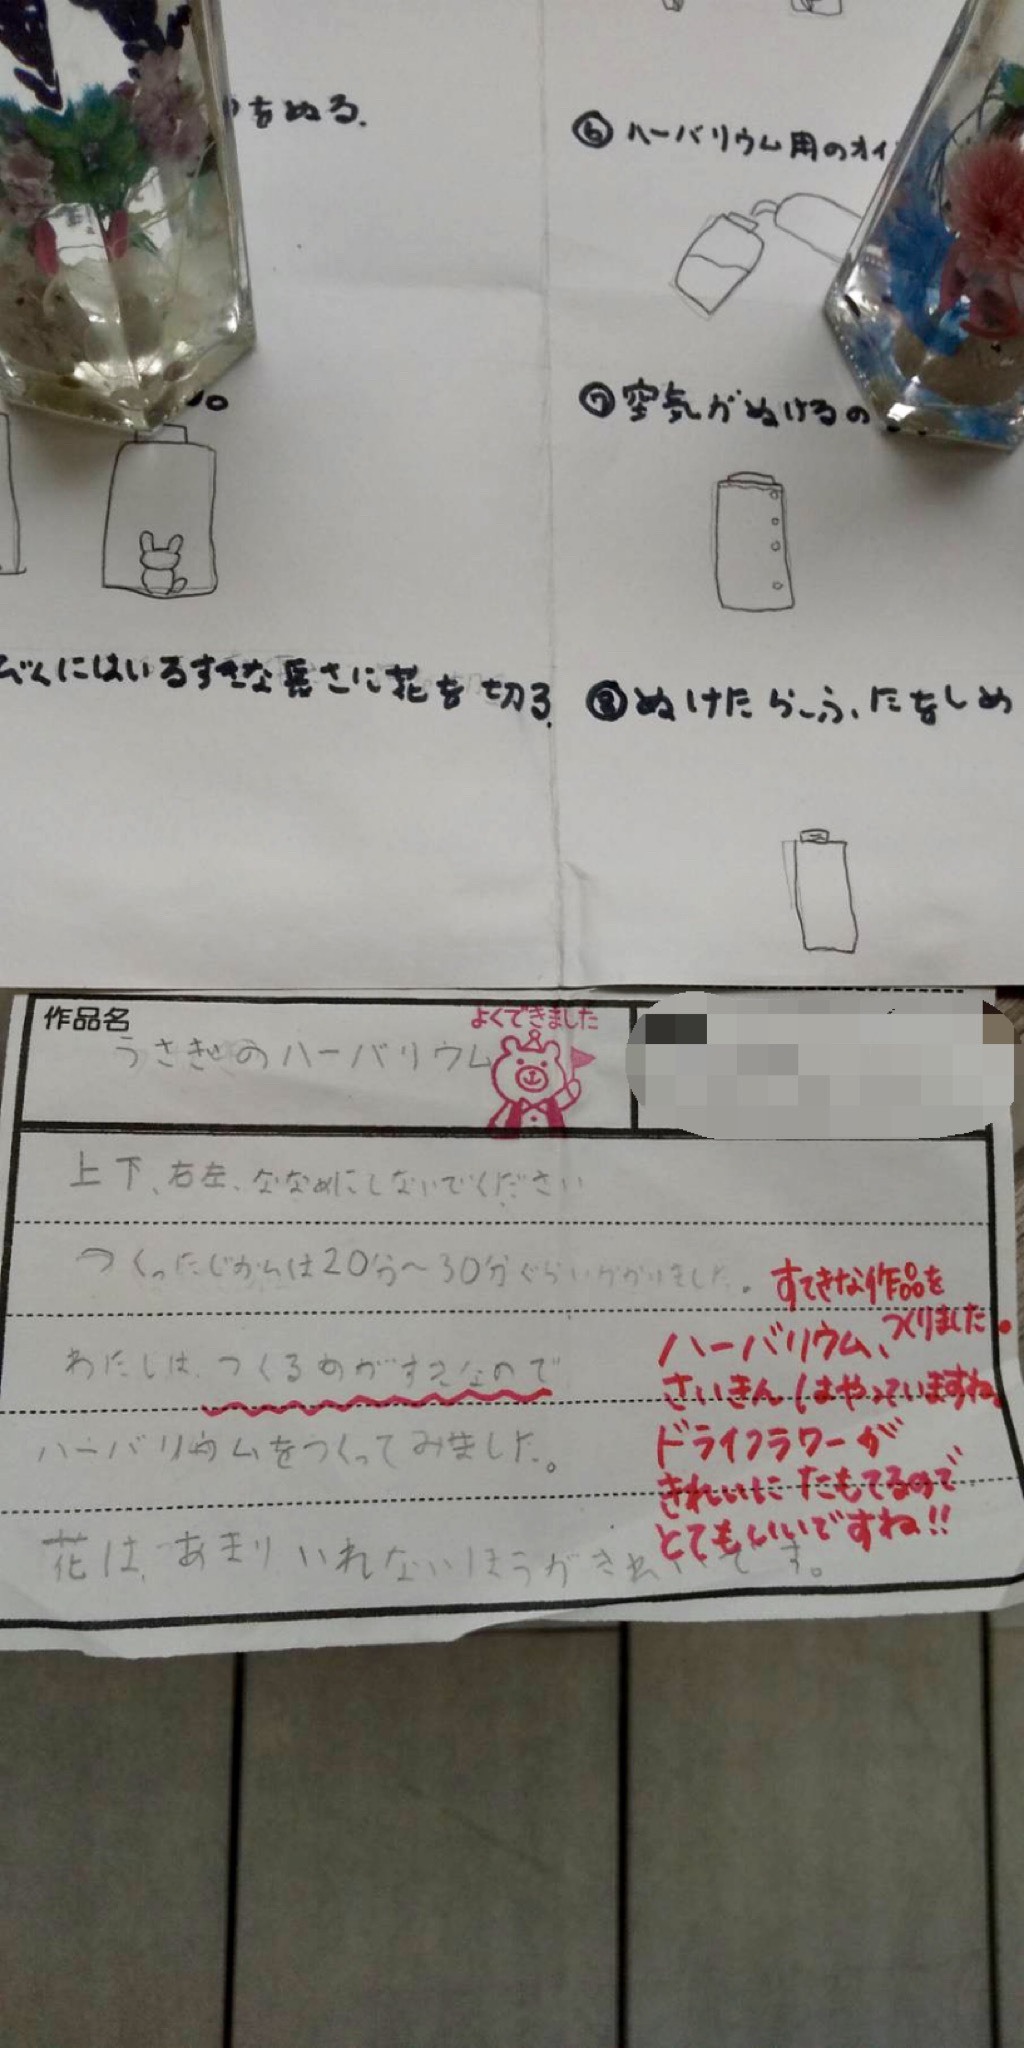 をぬる.
びんにはいるすきな長さに花を切る.
⑥ ハーバリウム用のオイ
⑦ 空気がぬけるの
⑧ ぬけたら、ふたをしめ
作品名
よくできました
うさぎのハーバリウム
上下、右左、ななめにしないでください
つくったじかんは20分〜30分ぐらいかかりました。
わたしは、つくるのがすきなので
ハーバリウムをつくってみました。
花は、あまりいれないほうがきれいです。
すてきな作品を
つくりました。
ハーバリウム、
さいきんはやっていますね。
ドライフラワーが
きれいにたもてるので
とてもいいですね!!